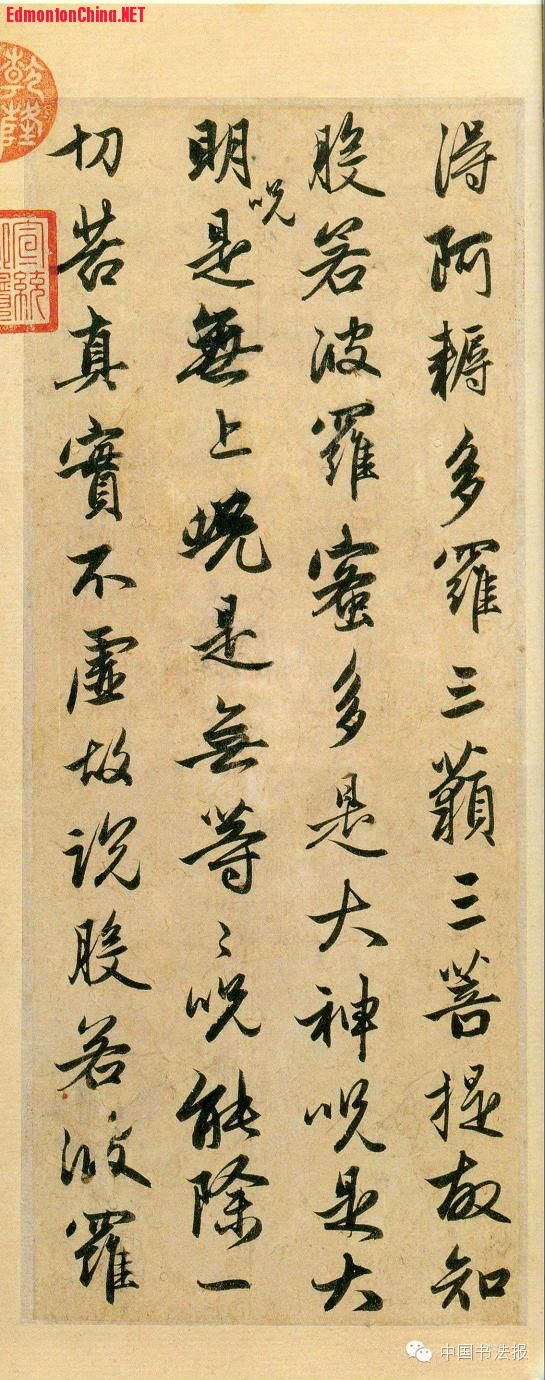 EdmontonChina.NET
得阿耨多羅三藐三菩提故知
般若波羅蜜多是大神呪是大
明呪是無上呪是無等〻呪能除一
切苦真實不虛故說般若波羅
乾隆
宣統
中国书法报